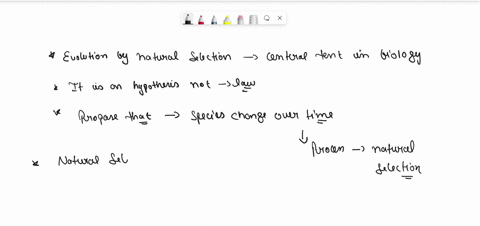 * Evolution by natural selection → central tent in biology
* It is an hypothesis not → law
* Propose that → Species change over time
↓
Process → natural selection
* Natural Sel